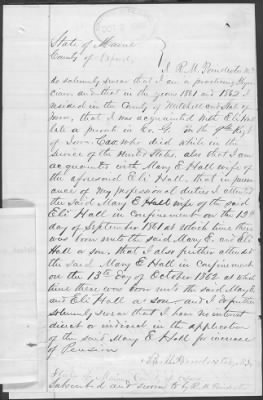 State of Maine
County of Oxford
I R. M.
do solemnly swear that I am a practicing Physi
cian and that in the years 1861 and 1862 I
resided in the County of Mitchell and State of
Iowa, that I was acquainted with Eli Hall
late a private in Co. G. in the 9th Regt
of Iowa Cav. who died while in the
Service of the United States. also that I am
acquainted with Mary E Hall wife of
the aforesaid Eli Hall, that in pursu
ance of my professional duties I attended
the said Mary E Hall wife of the said
Eli Hall in Confinement on the 12th
day of September 1861 at which time there
was born unto the said Mary E. and Eli
Hall a son, that I also further attended
the said Mary E Hall in Confinement
on the 13th day of October 1862 at which
time there was born unto the said Mary E
and Eli Hall a son and I do further
solemnly swear that I have no interest
direct or indirect in the application
of the said Mary E Hall for increase
of Pension
Subscribed and sworn to by R. M.